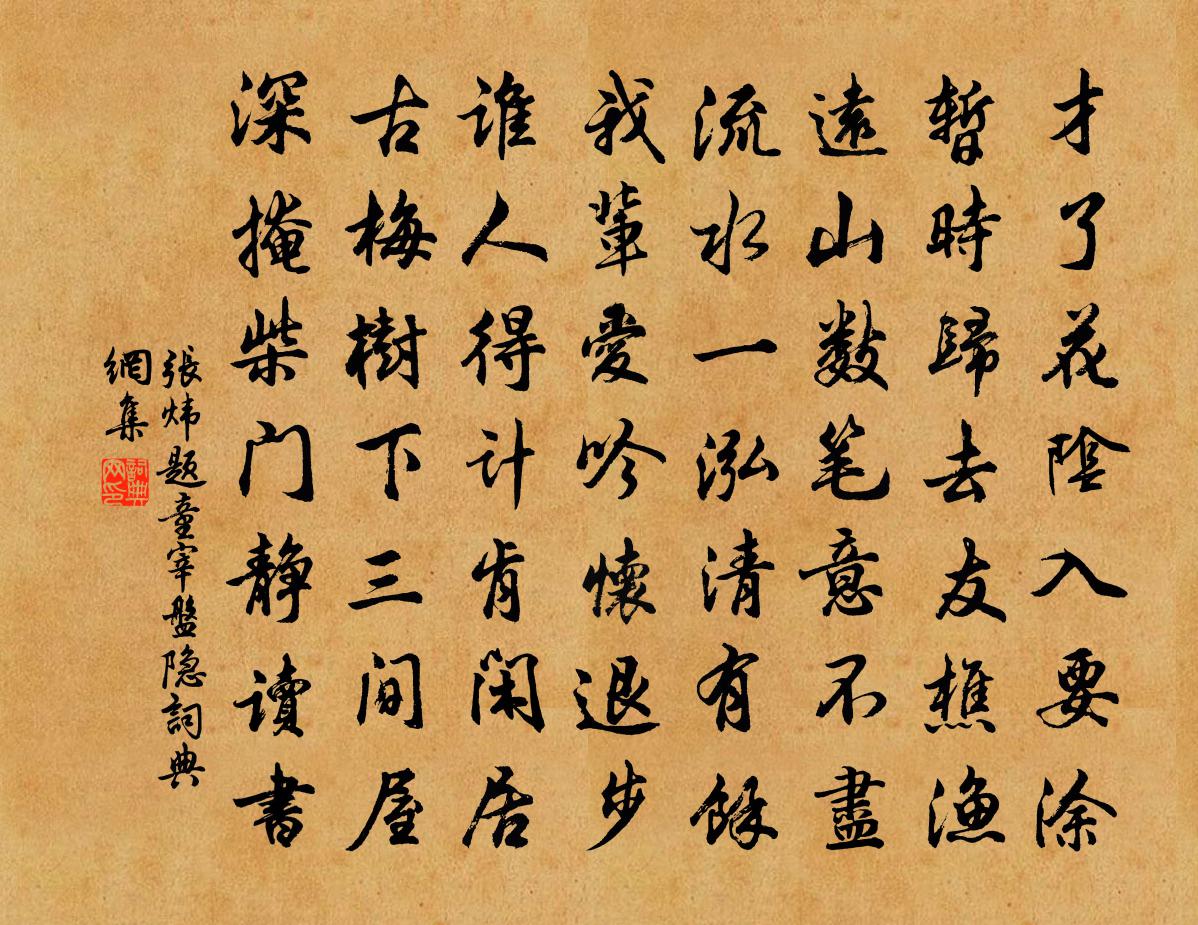 才了花陰入要涂
暫時歸去友樵漁
遠山數笔意不盡
流水一泓清有餘
我輩愛吟懷退步
谁人得计肯闲居
古梅樹下三间屋
深掩柴门静读書
張炜题童宰盤隐詞典
網集
詞典